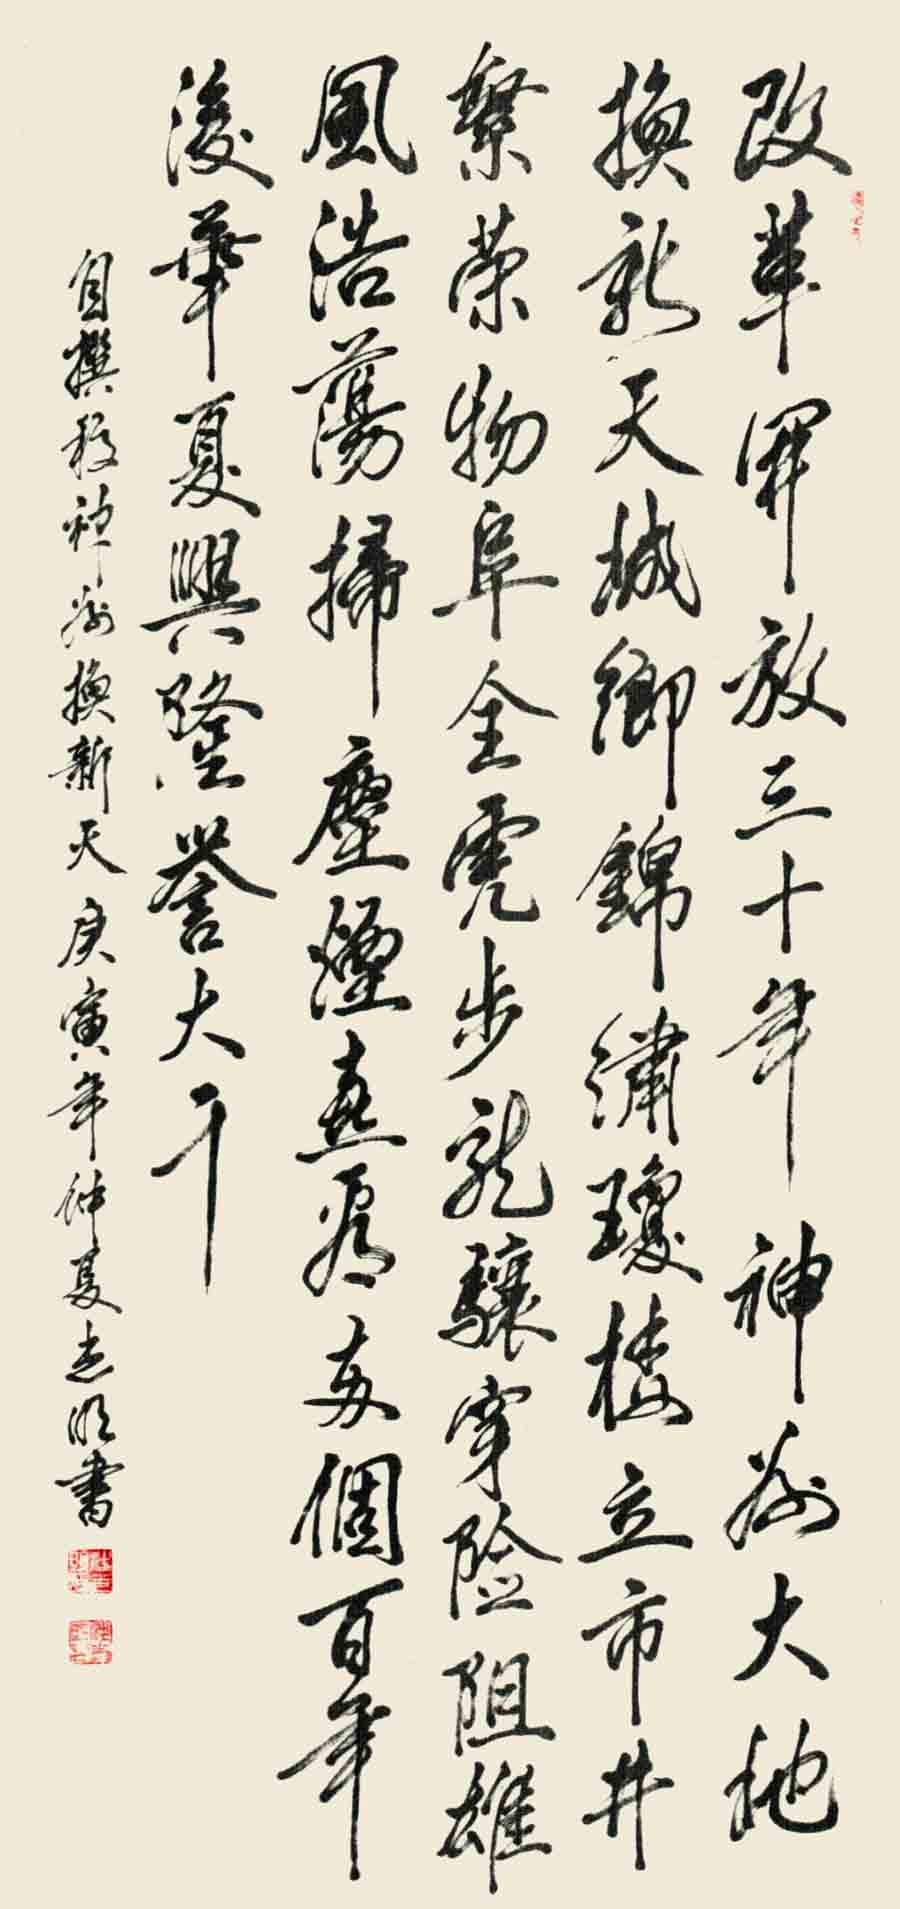 改革開放三十年神州大地
換新天城鄉錦繡瓊樓立市井
繁榮物阜全虎步龍驤穿險阻雄
風浩蕩掃塵煙喜看兩個百年
後華夏興隆譽大千
自撰神州換新天庚寅年仲夏志明書